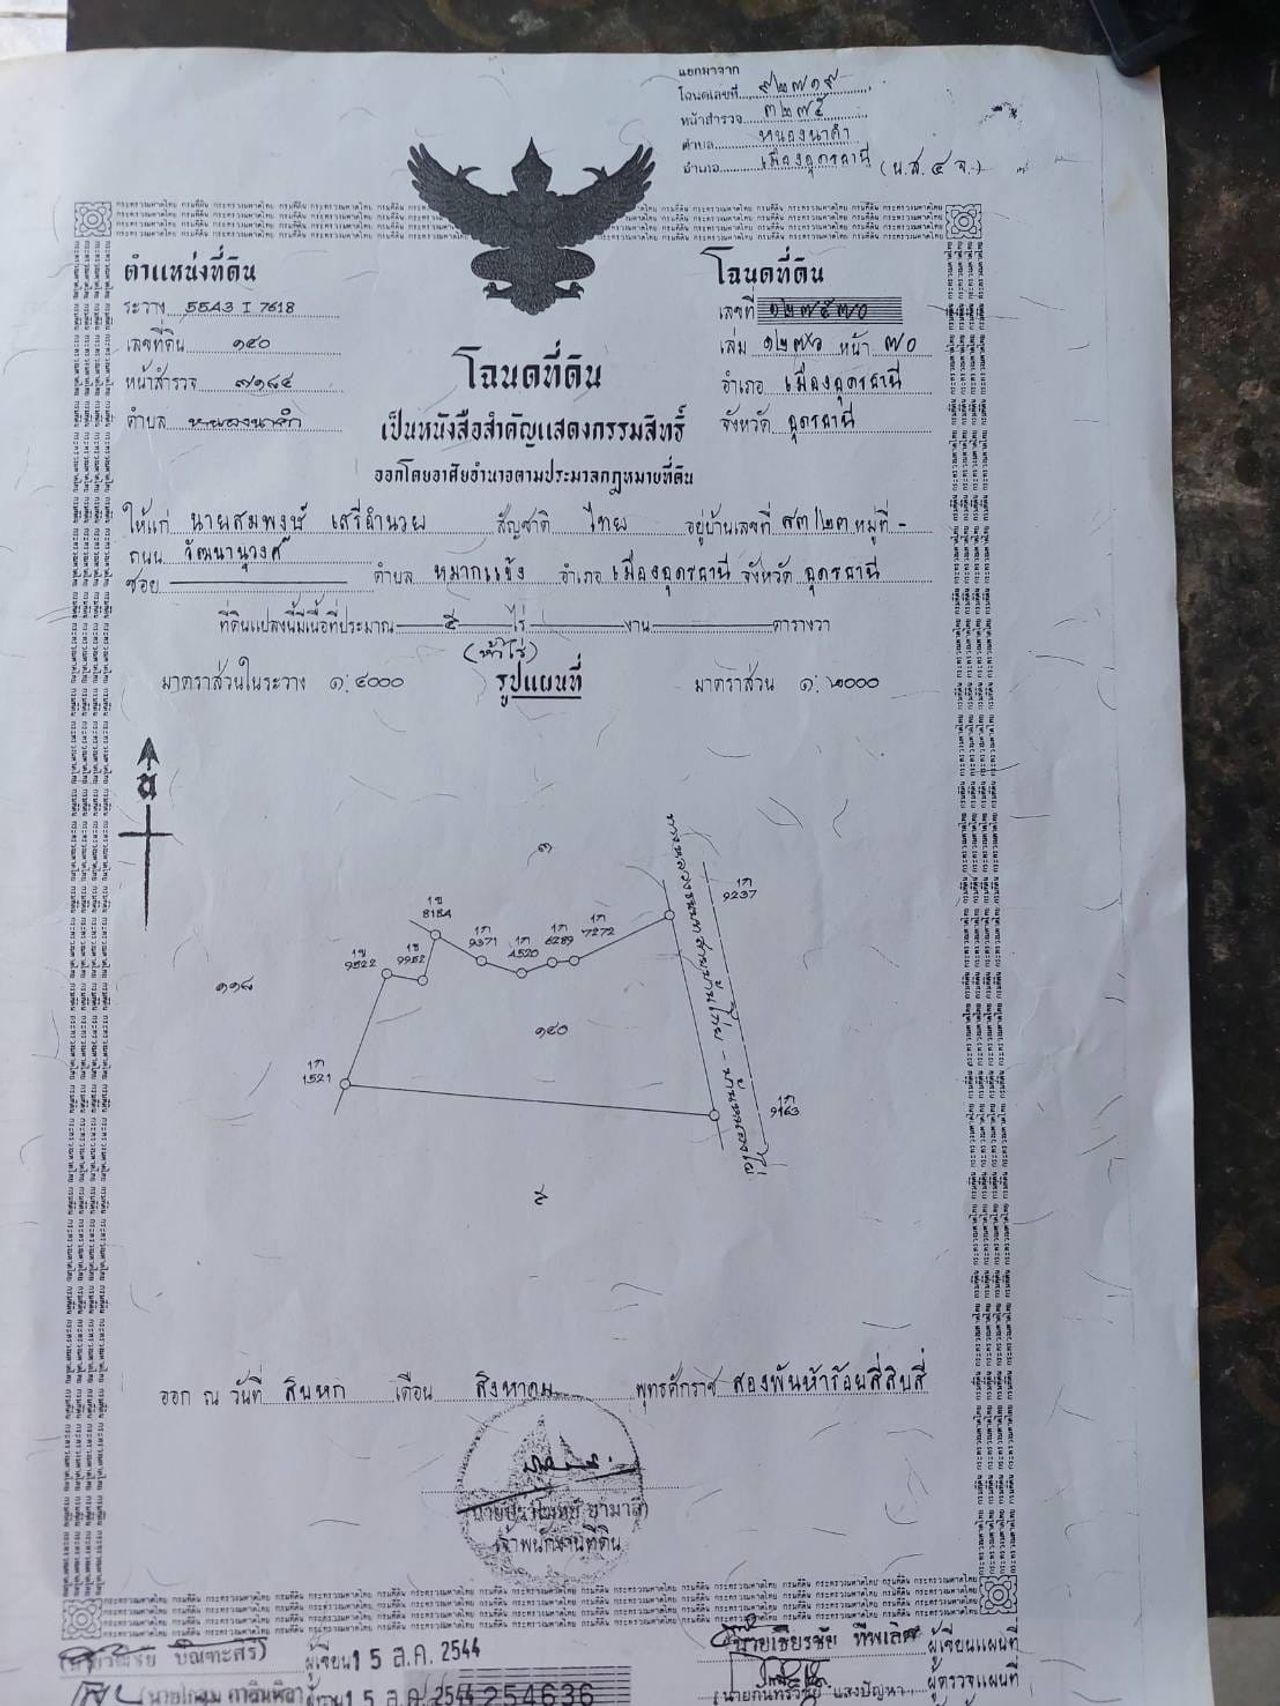 แยกมาจาก
โฉนดเลขที่
หน้าสำรวจ ๓๒๗๕
ตำบล หนองนาคำ
อำเภอ เมืองอุดรธานี (น.ส. ๔ จ.)
ตำแหน่งที่ดิน
ระวาง 5543 I 7618
เลขที่ดิน ๑๔๐
หน้าสำรวจ ๗๑๘๔
ตำบล หนองนาคำ
โฉนดที่ดิน
เลขที่ ๑๒๗๕๗๐
เล่ม ๑๒๗๖ หน้า ๗๐
อำเภอ เมืองอุดรธานี
จังหวัด อุดรธานี
โฉนดที่ดิน
เป็นหนังสือสำคัญแสดงกรรมสิทธิ์
ออกโดยอาศัยอำนาจตามประมวลกฎหมายที่ดิน
ให้แก่ นายสมพงษ์ เสรีอำนวย สัญชาติ ไทย อยู่บ้านเลขที่ ๙๓/๒๓ หมู่ที่ -
ถนน วัฒนานุวงศ์
ซอย ตำบล หมากแข้ง อำเภอ เมืองอุดรธานี จังหวัด อุดรธานี
ที่ดินแปลงนี้มีเนื้อที่ประมาณ ๕ ไร่ งาน ตารางวา
(ห้าไร่)
มาตราส่วนในระวาง ๑:๔๐๐๐ รูปแผนที่ มาตราส่วน ๑:๒๐๐๐
น
๑
1ก
9237
1ข
8184
1ก
9371
1ก
4520
1ก
6289
1ก
7272
1ข
9522
1ข
9952
๑๑๘
๑๔๐
1ก
1521
1ก
9163
ออก ณ วันที่ สิบหก เดือน สิงหาคม พุทธศักราช สองพันห้าร้อยสี่สิบสี่
เจ้าพนักงานที่ดิน
ผู้เขียน 15 ส.ค. 2544
15 ส.ค. 2544 254636
นายเธียรชัย ทิพเลศ ผู้เขียนแผนที่
ผู้ตรวจแผนที่